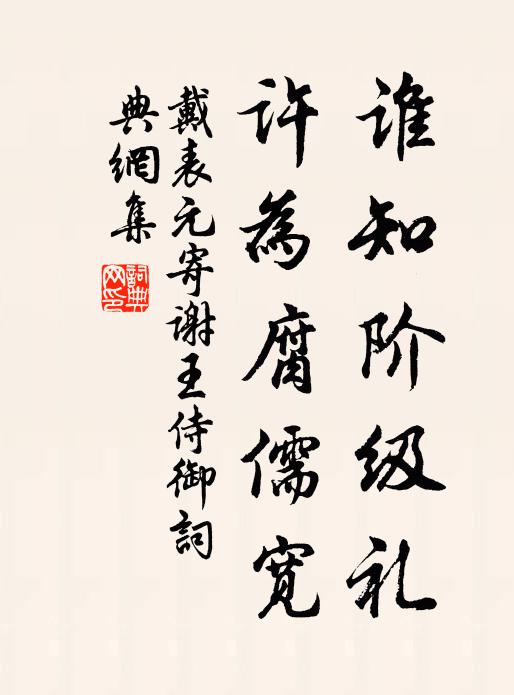 谁知阶级礼
许为腐儒宽
戴表元寄谢王侍御詞
典網集
詞典网印